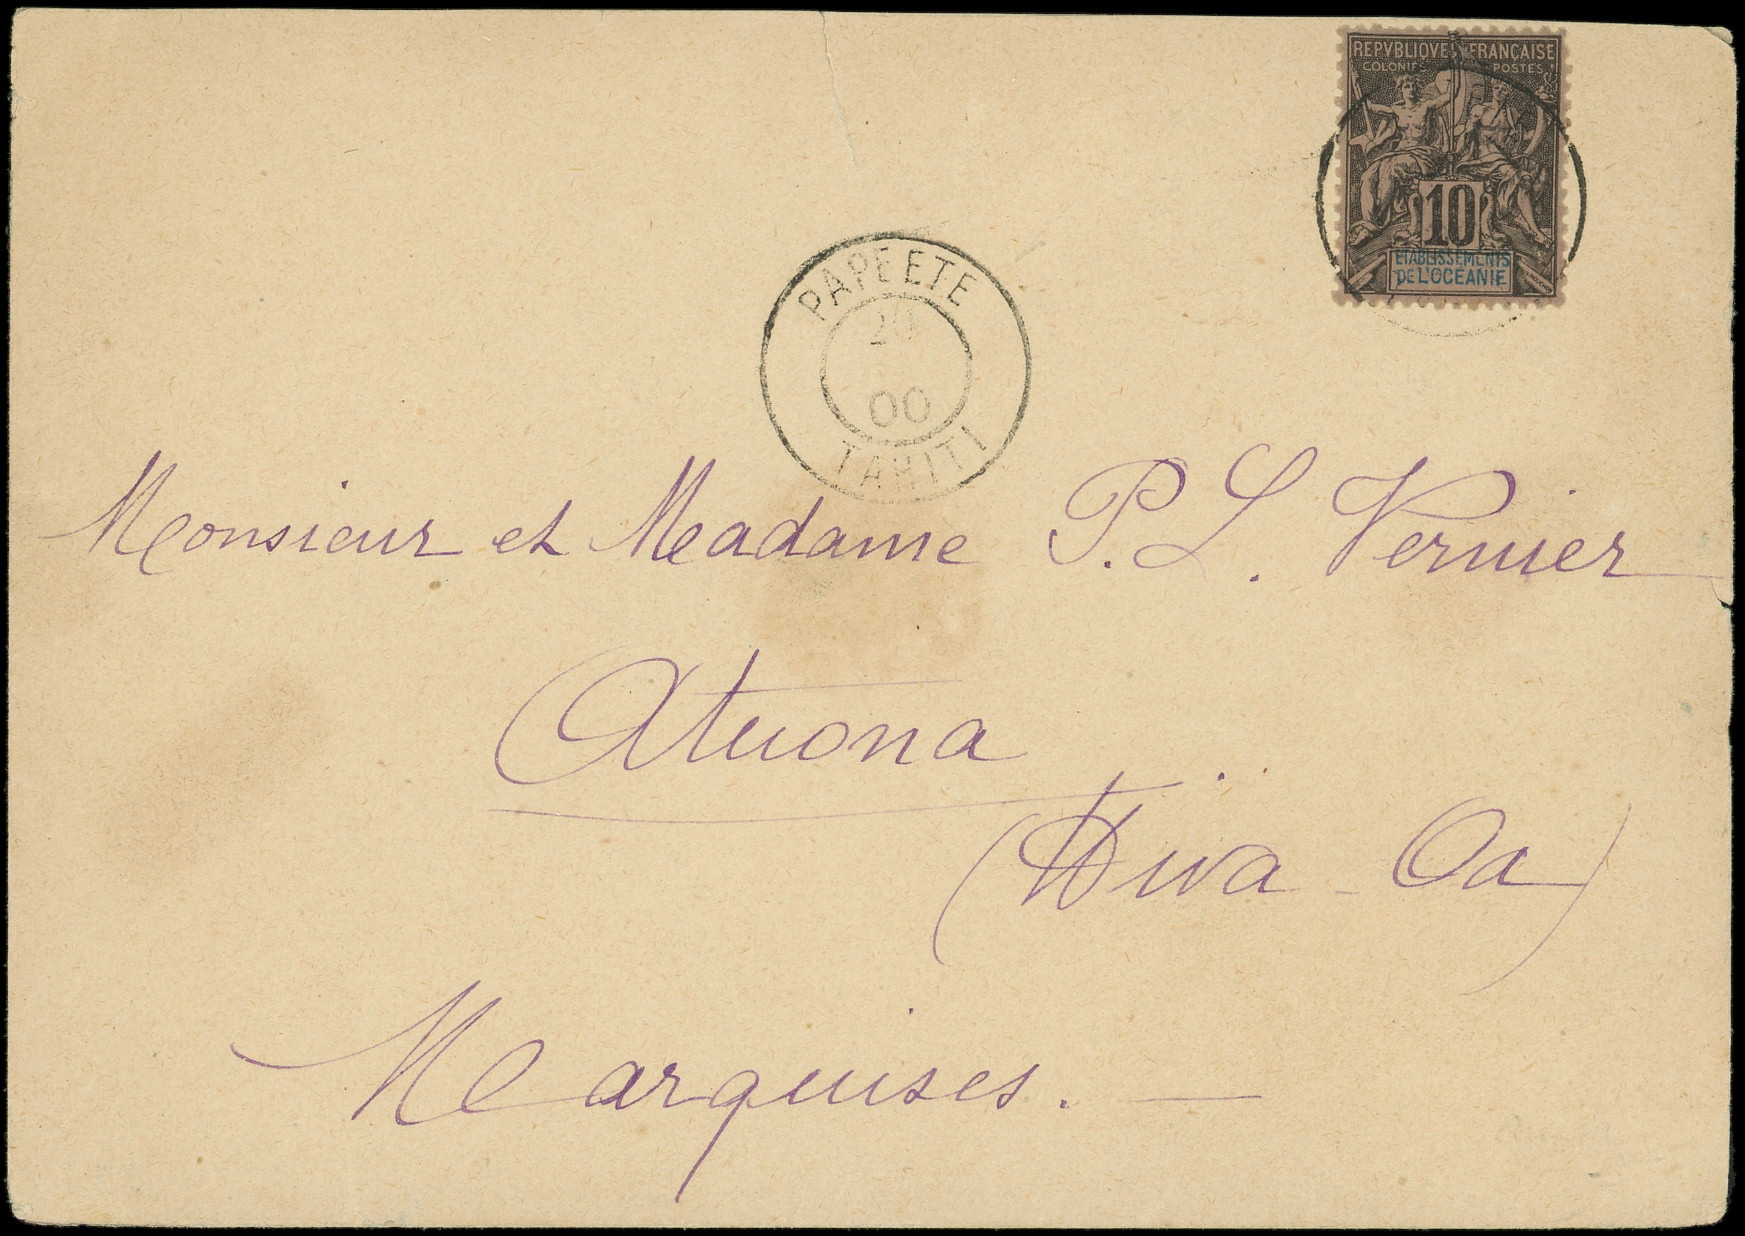 REPVBLIQVE FRANÇAISE
COLONIES POSTES
10
ETABLISSEMENTS
DE L'OCÉANIE
PAPEETE
20
00
TAHITI
Monsieur et Madame P. L. Vernier
Atuona
(Hiva-Oa)
Marquises. —